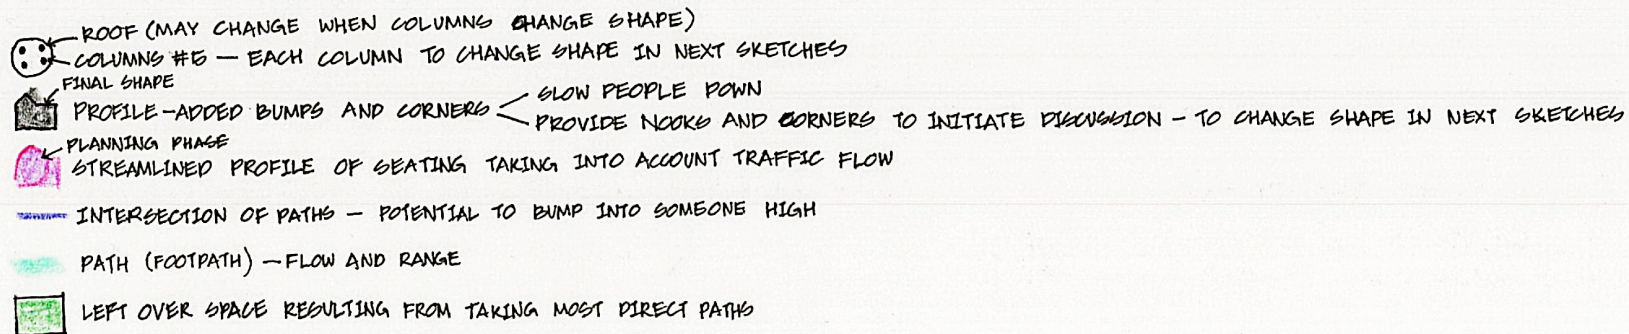 ROOF (MAY CHANGE WHEN COLUMNS CHANGE SHAPE)
COLUMNS #5 — EACH COLUMN TO CHANGE SHAPE IN NEXT SKETCHES
FINAL SHAPE
PROFILE-ADDED BUMPS AND CORNERS
SLOW PEOPLE DOWN
PROVIDE NOOKS AND CORNERS TO INITIATE DISCUSSION - TO CHANGE SHAPE IN NEXT SKETCHES
PLANNING PHASE
STREAMLINED PROFILE OF SEATING TAKING INTO ACCOUNT TRAFFIC FLOW
INTERSECTION OF PATHS — POTENTIAL TO BUMP INTO SOMEONE HIGH
PATH (FOOTPATH) — FLOW AND RANGE
LEFT OVER SPACE RESULTING FROM TAKING MOST DIRECT PATHS